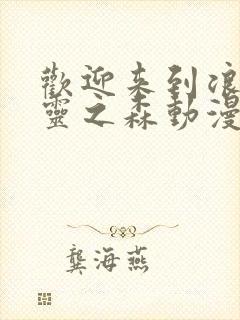 歡迎来到浪
靈之森動漫
龔海燕